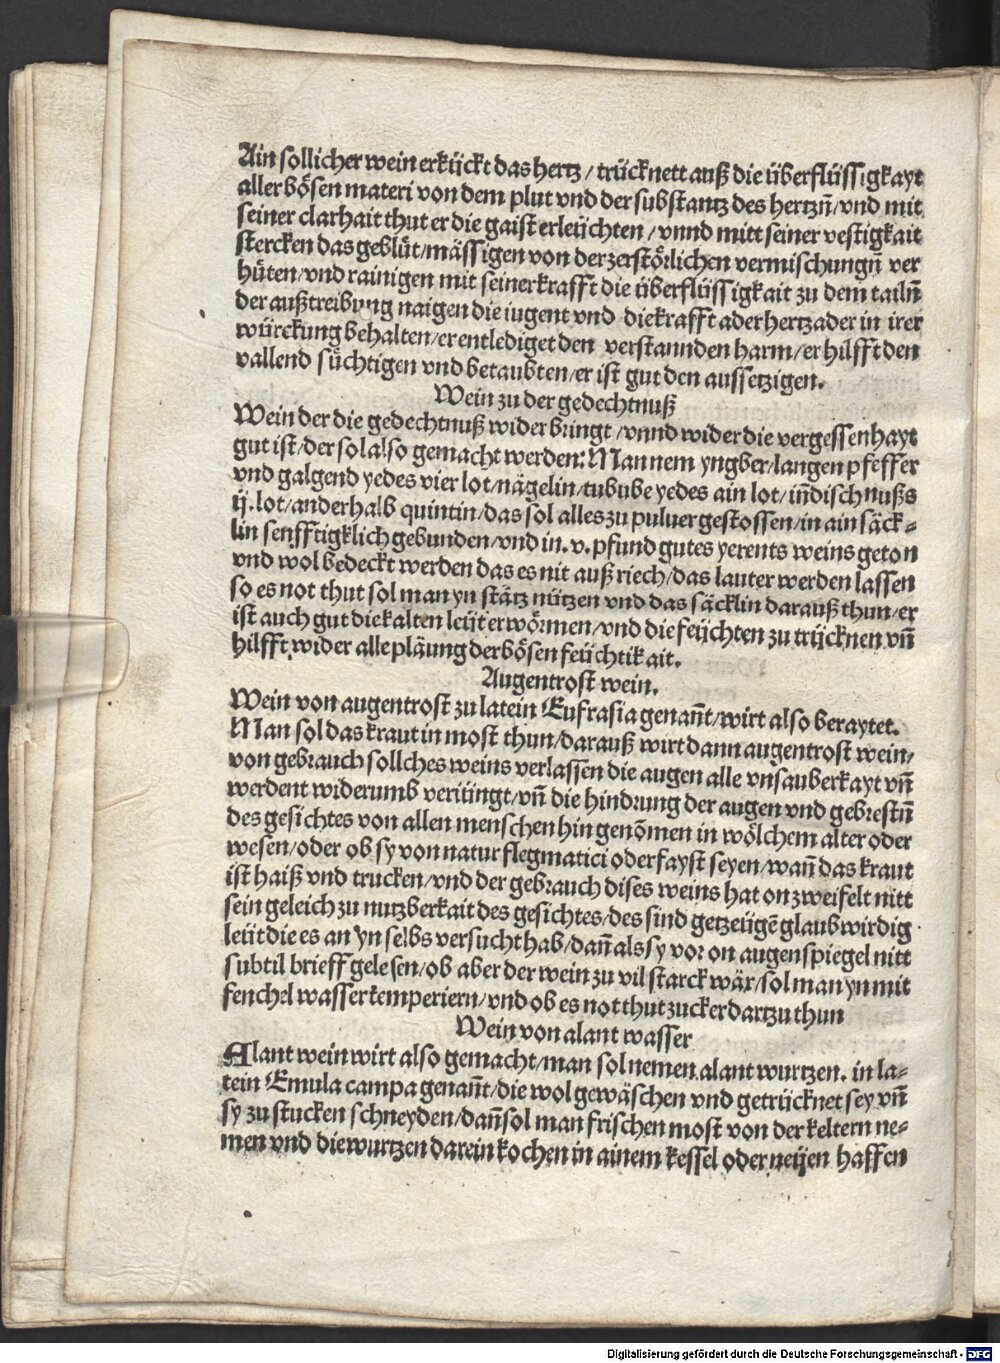 Ain sollicher wein erkückt das hertz / trücknett auß die überflüssigkayt
aller bösen materi von dem plut vnd der substantz des hertzn̄/vnd mit
seiner clarhait thut er die gaist erleüchten / vnnd mitt seiner vestigkait
stercken das geblüt/mässigen von der zerstörlichen vermischungn̄ ver
hüten/vnd rainigen mit seiner krafft die überflüssigkait zu dem tailn̄
der außtreibung naigen die iugent vnd die krafft ader hertzader in irer
würckung behalten/er entlediget den verstannden harm/er hilfft den
vallend süchtigen vnd betaubten/er ist gut den aussetzigen.
Wein zu der gedechtnuß
Wein der die gedechtnuß wider bringt /vnnd wider die vergessenhayt
gut ist/der sol also gemacht werden: Man nem yngber/langen pfeffer
vnd galgend yedes vier lot/nägelin/tubube yedes ain lot/in̄disch nußs
ij.lot/anderhalb quintin/das sol alles zu puluer gestossen/in ain säck⸗
lin senfftigklich gebunden/vnd in.v.pfund gutes yerents weins geton
vnd wol bedeckt werden das es nit auß riech/das lauter werden lassen
so es not thut sol man yn stätz nützen vnd das säcklin darauß thun/er
ist auch gut die kalten leüt erwörmen/vnd die feüchten zu trücknen vn̄
hilfft wider alle pläung der bösen feüchtikait.
Augentrost wein.
Wein von augentrost zu latein Eufrasia genan̄t/wirt also beraytet.
Man sol das kraut in most thun/darauß wirt dann augentrost wein/
von gebrauch sollches weins verlassen die augen alle vnsauberkayt vn̄
werdent widerumb veriüngt/vn̄ die hindrung der augen vnd gebrestn̄
des gesichtes von allen menschen hin genōmen in wölchem alter oder
wesen/oder ob sy von natur flegmatici oder fayst seyen/wan̄ das kraut
ist haiß vnd trucken/vnd der gebrauch dises weins hat on zweifelt nitt
sein geleich zu nutzberkait des gesichtes/des sind getzeügē glaubwirdig
leüt die es an yn selbs versucht hab/dan̄ als sy vor on augenspiegel nitt
subtil brieff gelesen/ob aber der wein zu vil starck wär/sol man yn mit
fenchel wasser temperiern/vnd ob es not thut zucker dartzu thun
Wein von alant wasser
Alant wein wirt also gemacht/man sol nemen alant wurtzen. in la⸗
tein Emula campa genan̄t/die wol gewäschen vnd getrücknet sey vn̄
sy zu stucken schneyden/dan̄ sol man frischen most von der keltern ne⸗
men vnd die wurtzen darein kochen in ainem kessel oder neüen haffen
Digitalisierung gefördert durch die Deutsche Forschungsgemeinschaft - DFG